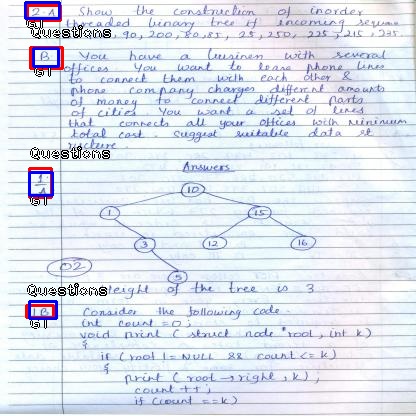 2.A Show the construction of inorder
GT
threaded binary tree if incoming
Questions 90, 200, 80, 85, 25, 250, 225, 215, 235.
B You have a business with several
GT
offices You want to lease phone lines
Questions
to connect them with each other &
phone company charges different amounts
of money to connect different parts
of cities You want a set of lines
that connects all your offices with minimum
total cost. suggest suitable data st
ructure
Questions
Answers
1.
A
GT
10
1 15
3 12 16
02
5
Questions
Height of the tree is 3
1B Consider the following code.
GT
int count = 0;
void print (struct node *root, int k)
{
if (root != NULL && count <= k)
{
print (root → right, k);
count ++;
if (count == k)